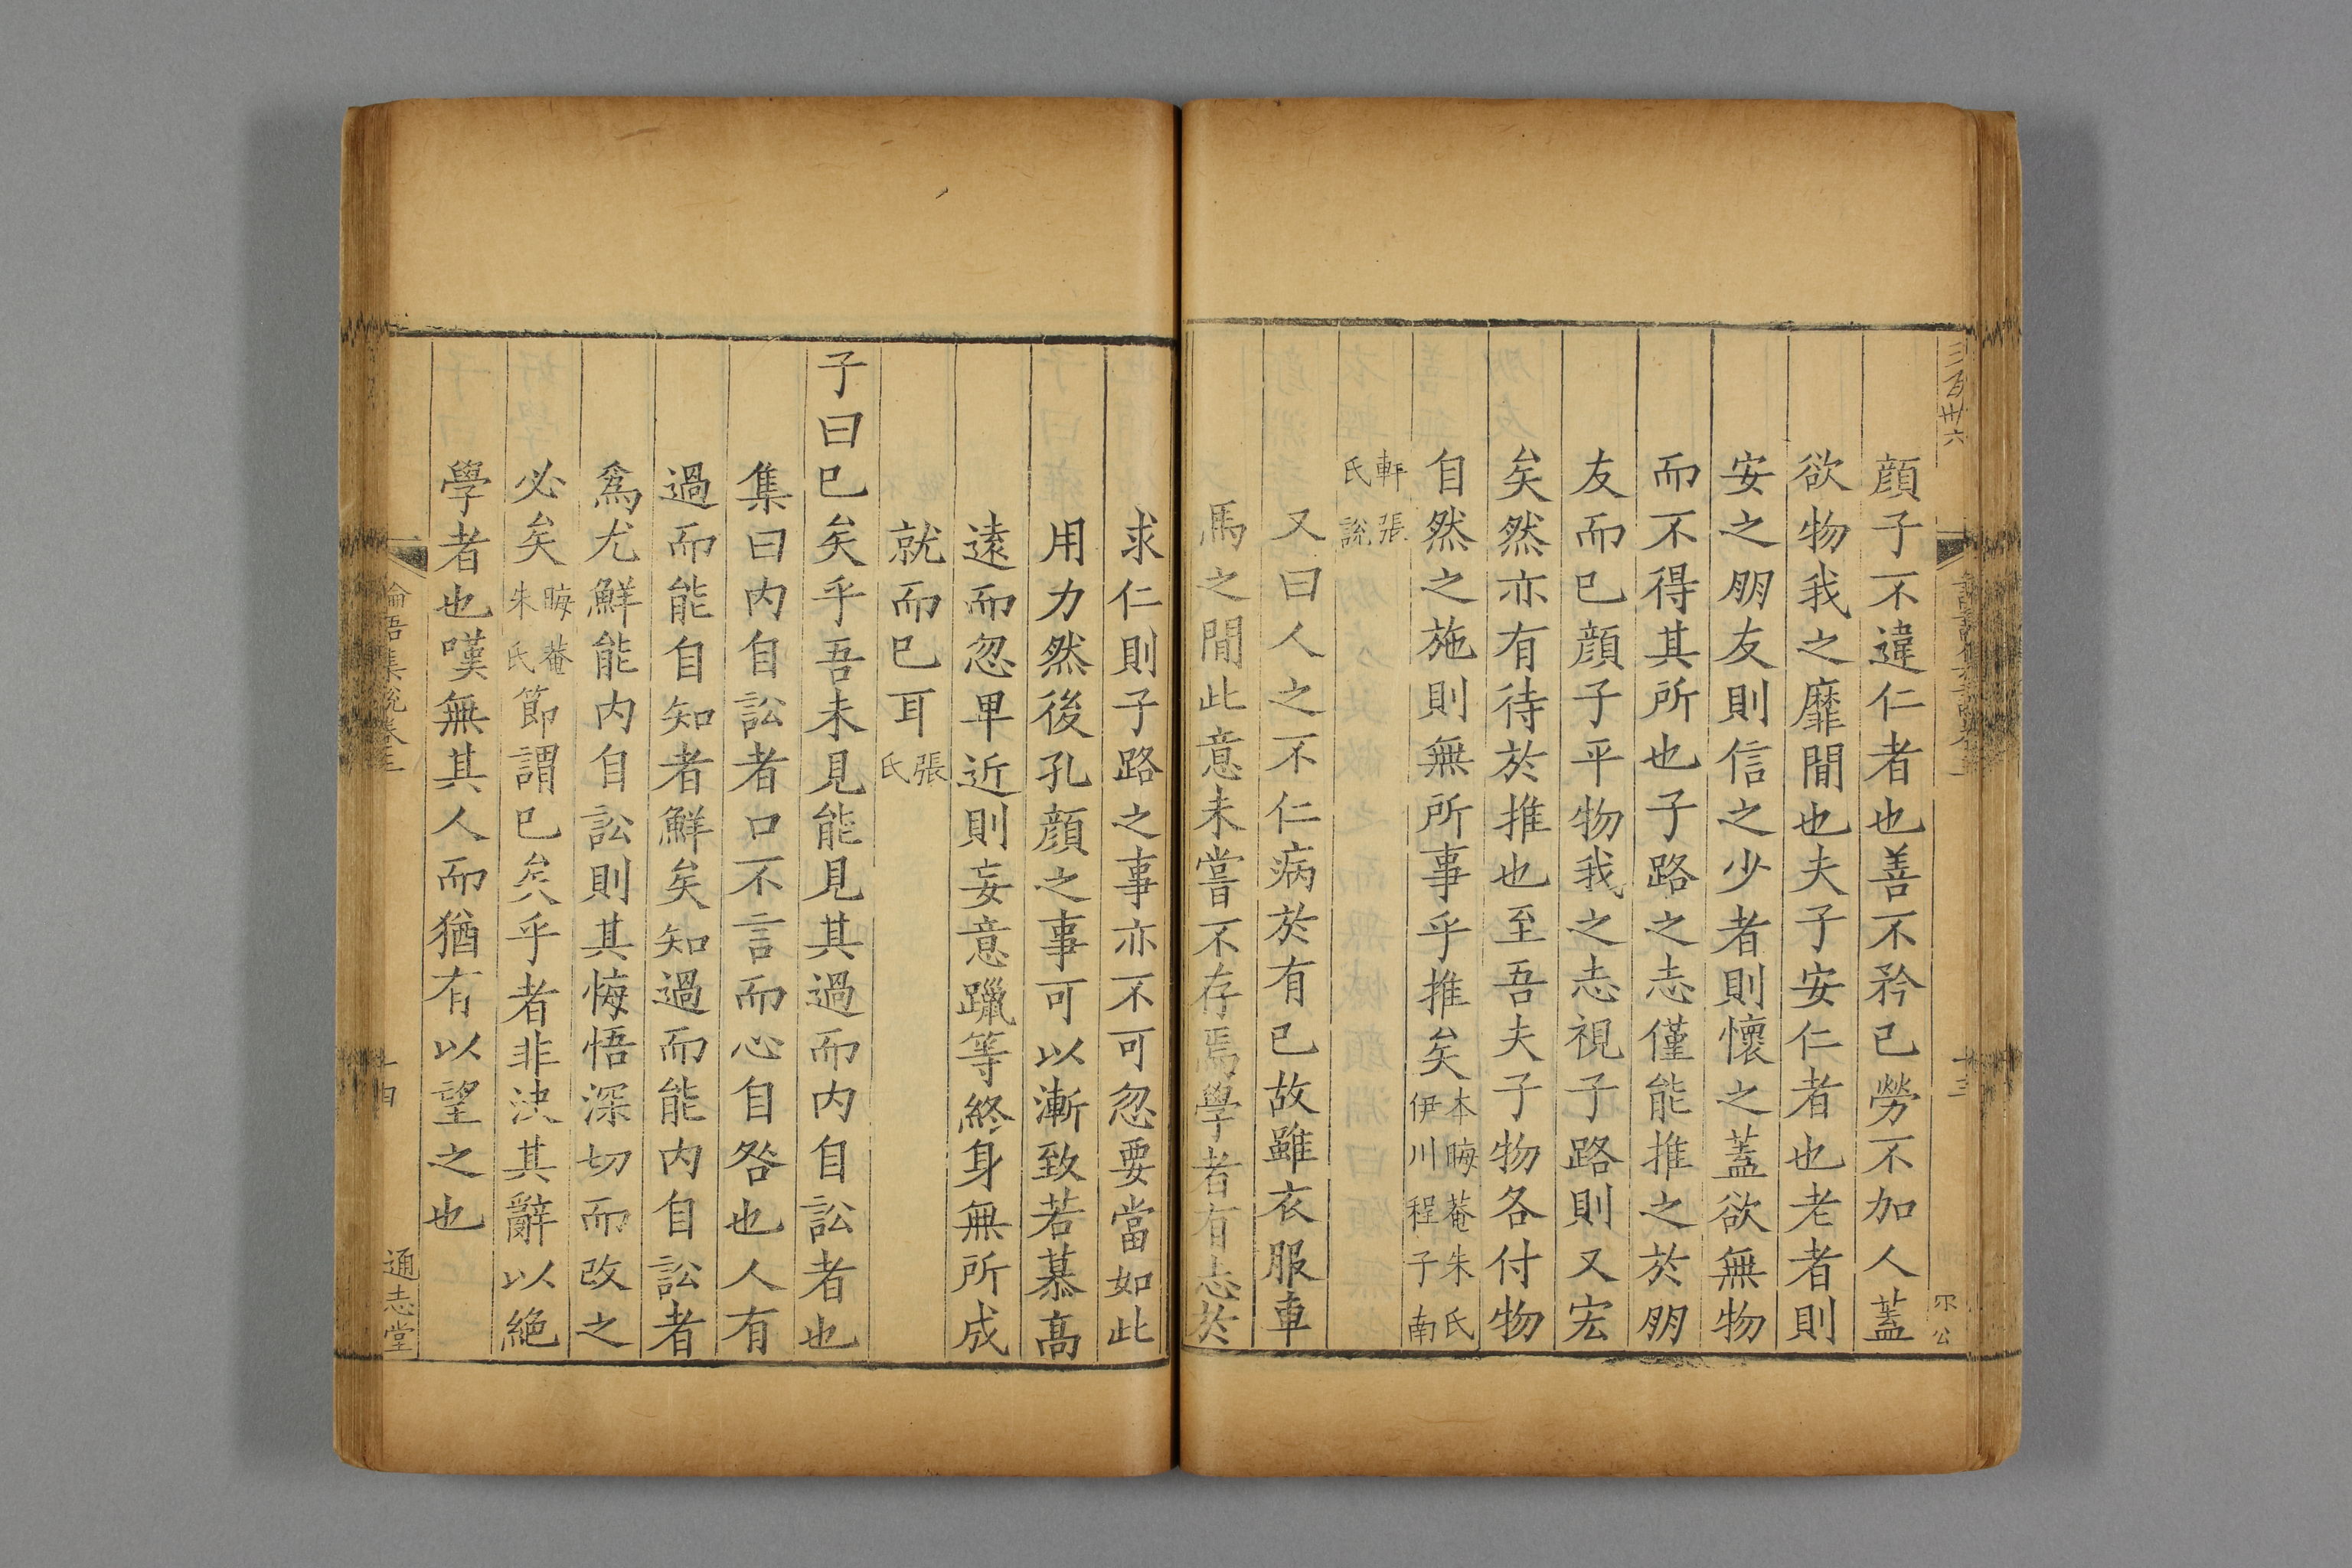 三百卅六
顔子不違仁者也善不矜己勞不加人蓋
欲物我之靡間也夫子安仁者也老者則
安之朋友則信之少者則懷之蓋欲無物
而不得其所也子路之志僅能推之於朋
友而已顔子平物我之志視子路則又宏
矣然亦有待於推也至吾夫子物各付物
自然之施則無所事乎推矣本晦菴朱氏伊川程子南
軒張氏說
又曰人之不仁病於有已故雖衣服車
馬之間此意未嘗不存焉學者有志於
十三
求仁則子路之事亦不可忽要當如此
用力然後孔顔之事可以漸致若慕髙
逺而忽卑近則妄意躐等終身無所成
就而已耳張氏
子曰已矣乎吾未見能見其過而内自訟者也
集曰内自訟者口不言而心自咎也人有
過而能自知者鮮矣知過而能内自訟者
爲尤鮮能内自訟則其悔悟深切而改之
必矣晦菴朱氏節謂已矣乎者非決其辭以絶
學者也嘆無其人而猶有以望之也
論語集說卷三
十四
通志堂